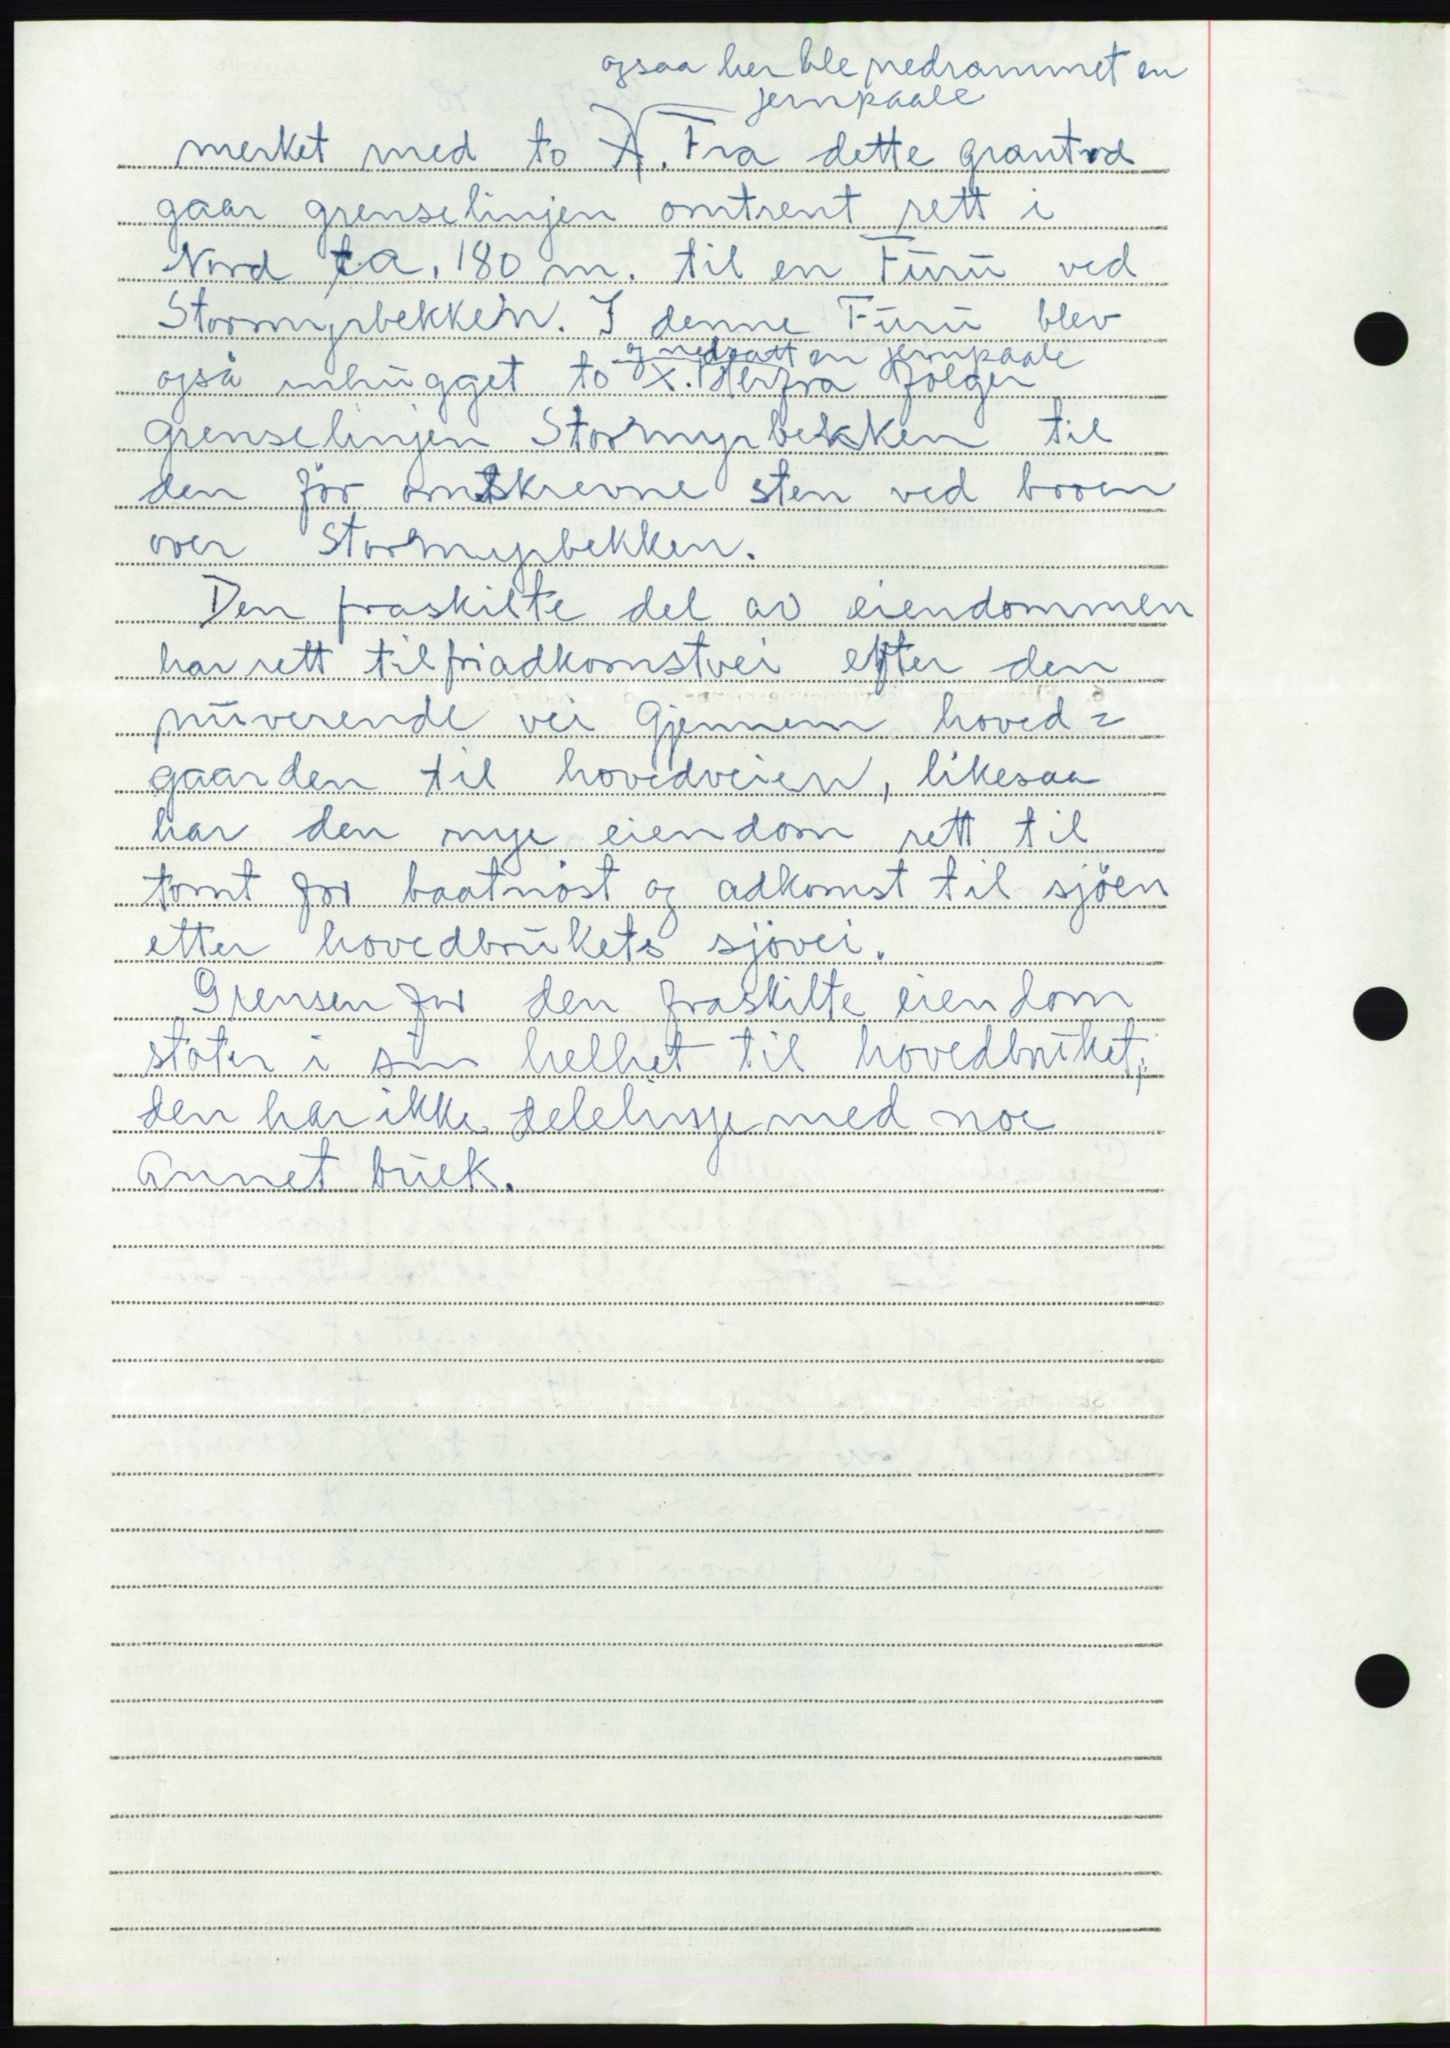 ogsaa her ble nedrammet en
jernpaale
merket med to X. Fra dette grantre
gaar grenselinjen omtrent rett i
Nord ca. 180 m. til en Furu ved
Stormyrbekken. I denne Furu blev
og nedsatt en jernpaale
også inhugget to X. Herfra følger
grenselinjen Stormyrbekken til
den för omskrevne sten ved broen
over Stormyrbekken.
Den fraskilte del av eiendommen
har rett til fri adkomstvei efter den
nuverende vei Gjennem hoved=
gaarden til hovedveien, likesaa
har den nye eiendom rett til
tomt for baatnöst og adkomst til sjöen
etter hovedbrukets sjövei.
Grensen for den fraskilte eiendom
støter i sin helhet til hovedbruket,
den har ikke delelinje med noe
Annet bruk.